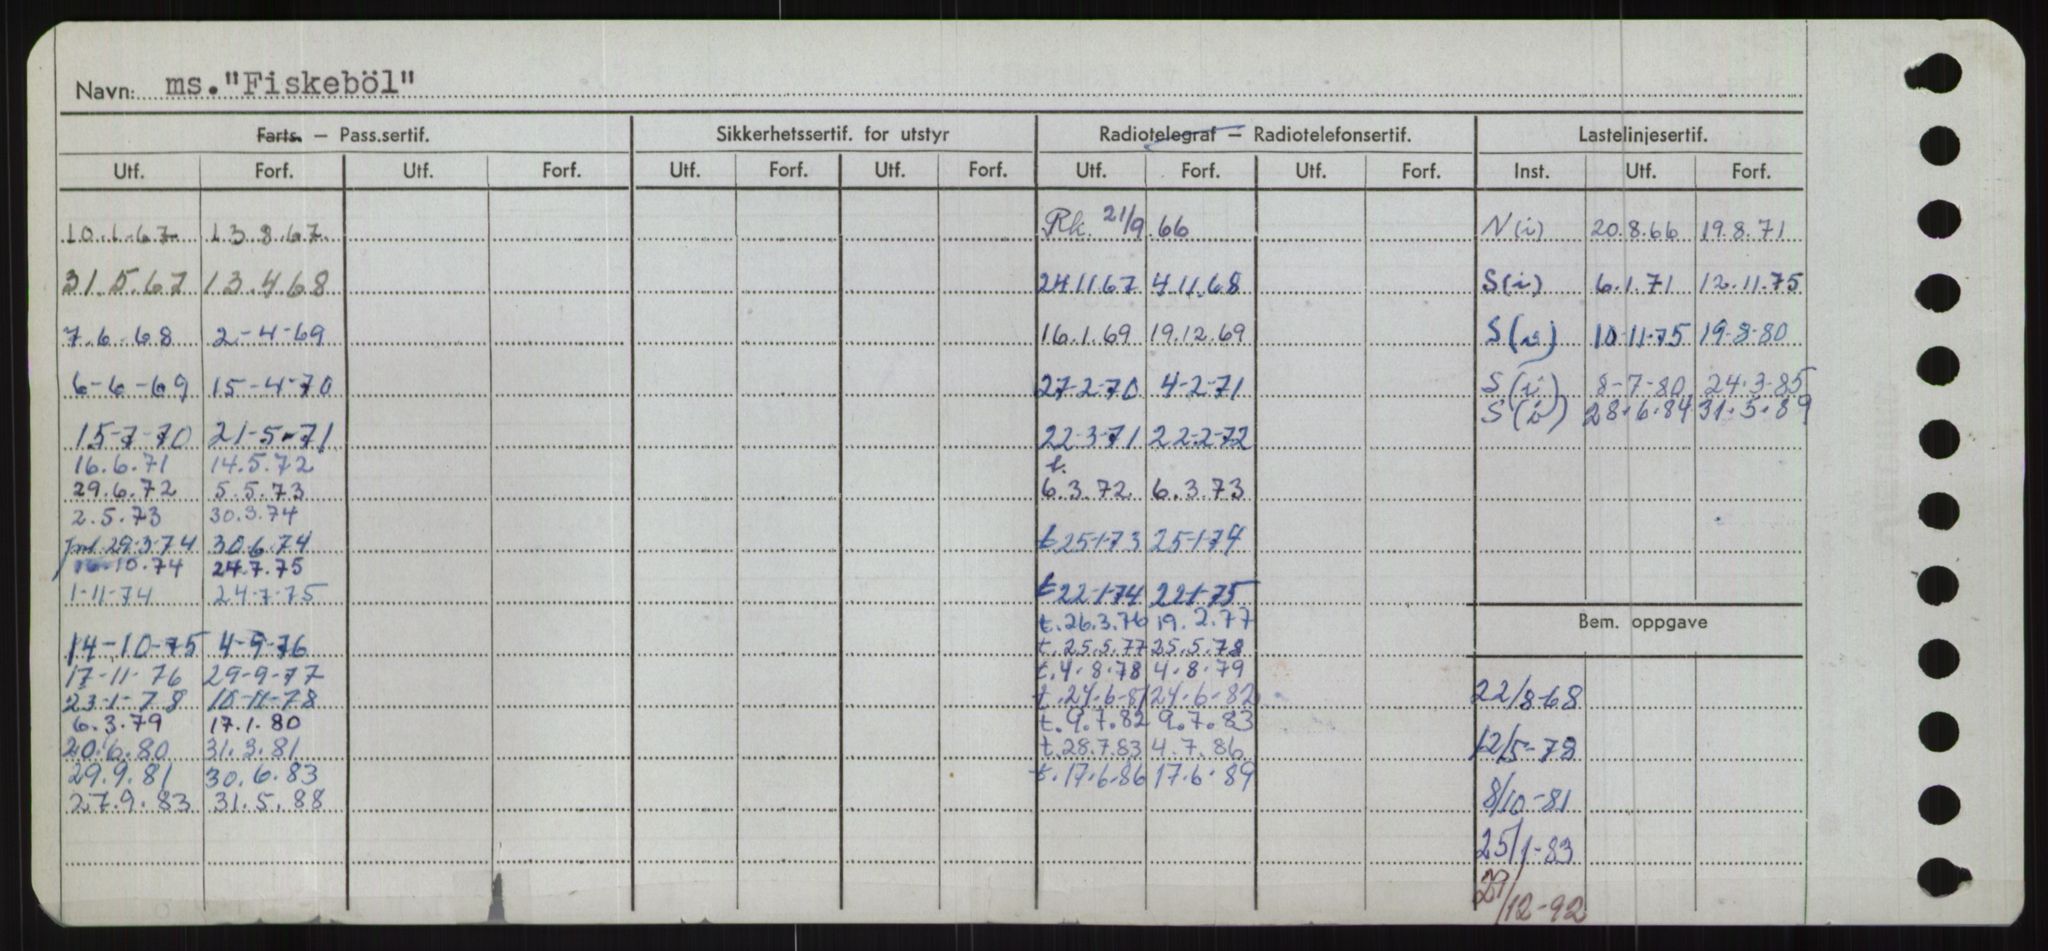 Navn: ms."Fiskeböl"
Farts. — Pass.sertif. Sikkerhetssertif. for utstyr Radiotelegraf — Radiotelefonsertif. Lastelinjesertif.
Utf. Forf. Utf. Forf. Utf. Forf. Utf. Forf. Utf. Forf. Utf. Forf. Inst. Utf. Forf.
10.1.67 13.8.67 Rk. 21/9.66 N(i) 20.8.66 19.8.71
31.5.67 13.4.68 24.11.67 4.11.68 S(i) 6.1.71 12.11.75
7.6.68 2-4-69 16.1.69 19.12.69 S(i) 10-11-75 19-8-80
6-6-69 15-4-70 27-2-70 4-2-71 S(i) 8-7-80 24.3-85
S(i) 28.6.84 31.5.89
15-7-70 21-5-71 22-3-71 22-2-72
16.6.71 14.5.72 t.
29.6.72 5.5.73 6.3.72 6.3.73
2.5.73 30.3.74
29.3.74 30.6.74 t 25-1-73 25-1-74
10.74 24.7.75
1-11-74 24-7-75 t 22-1-74 22-1-75
t. 26.3.76 19.2.77
Bem. oppgave
14-10-75 4-9-76 t. 25.5.77 25.5.78
17-11-76 29-9-77 t. 4.8.78 4.8.79
23-1-78 10-11-78 t. 24.6-81 24.6-82 22/8-68
6.3.79 17.1.80 t. 9.7.82 9.7.83
20.6.80 31.3.81 t. 28.7.83 4.7.86 12/5-78
29.9.81 30.6.83 t. 17.6.86 17.6.89
27.9.83 31.5.88 8/10-81
25/1-83
29/12-92